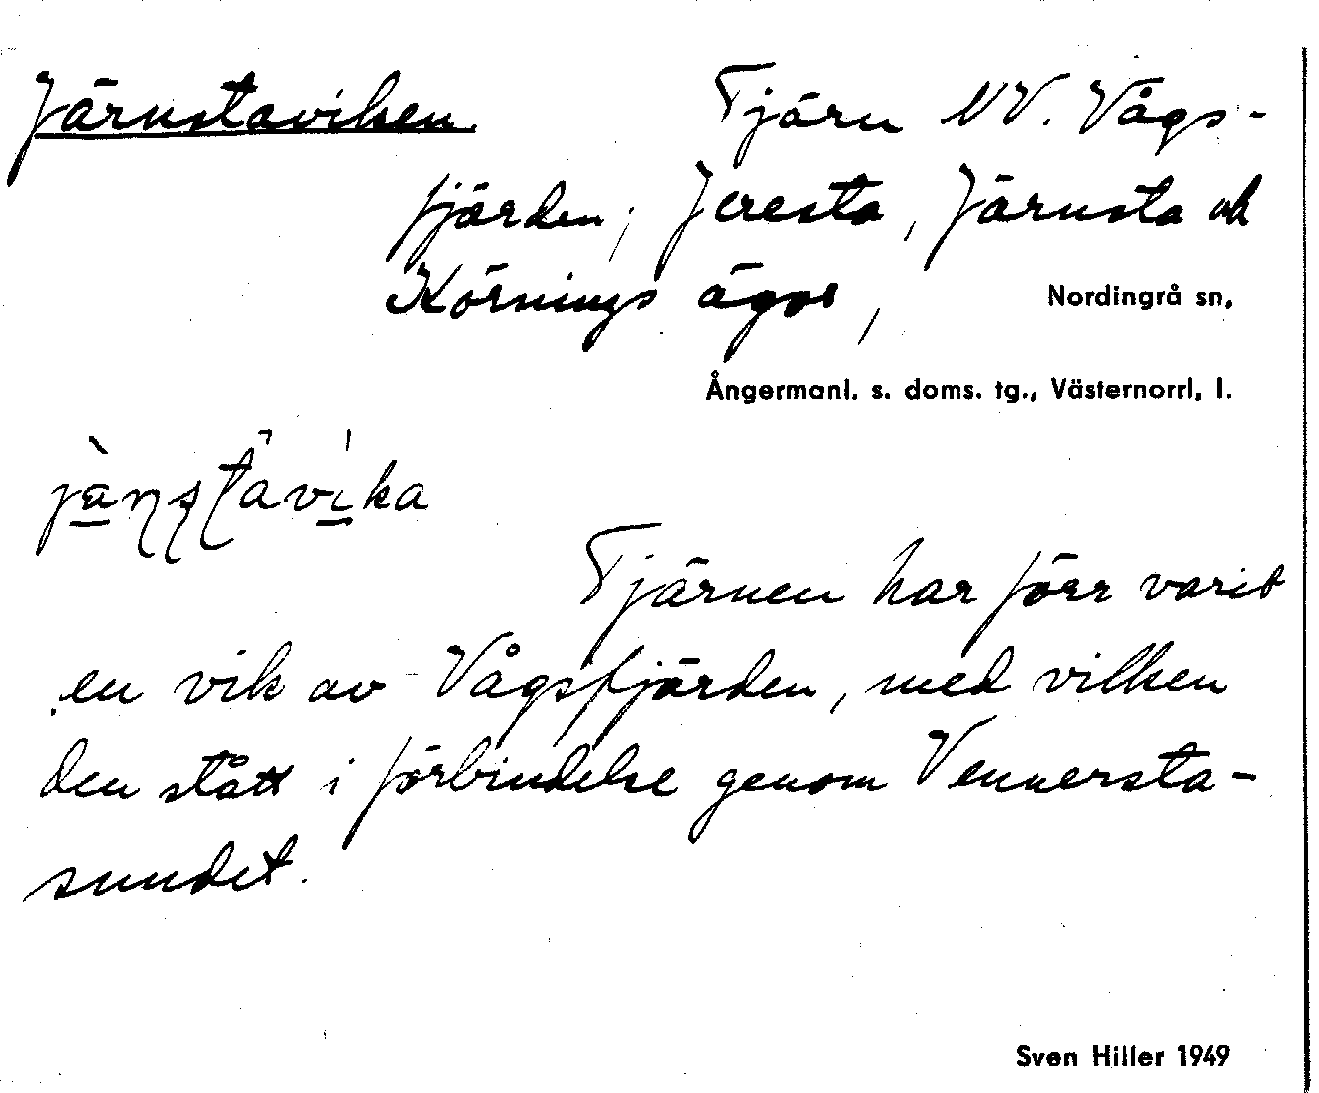 Järnstaviken. Tjärn NV. Vågs-
fjärden; Jeresta, Järnsta och
Körnings ägor,
Nordingrå sn,
Ångermanl. s. doms. tg., Västernorrl. l.
Tjärnen har förr varit
en vik av Vågsfjärden, med vilken
den stått i förbindelse genom Vennersta-
sundet.
Sven Hiller 1949